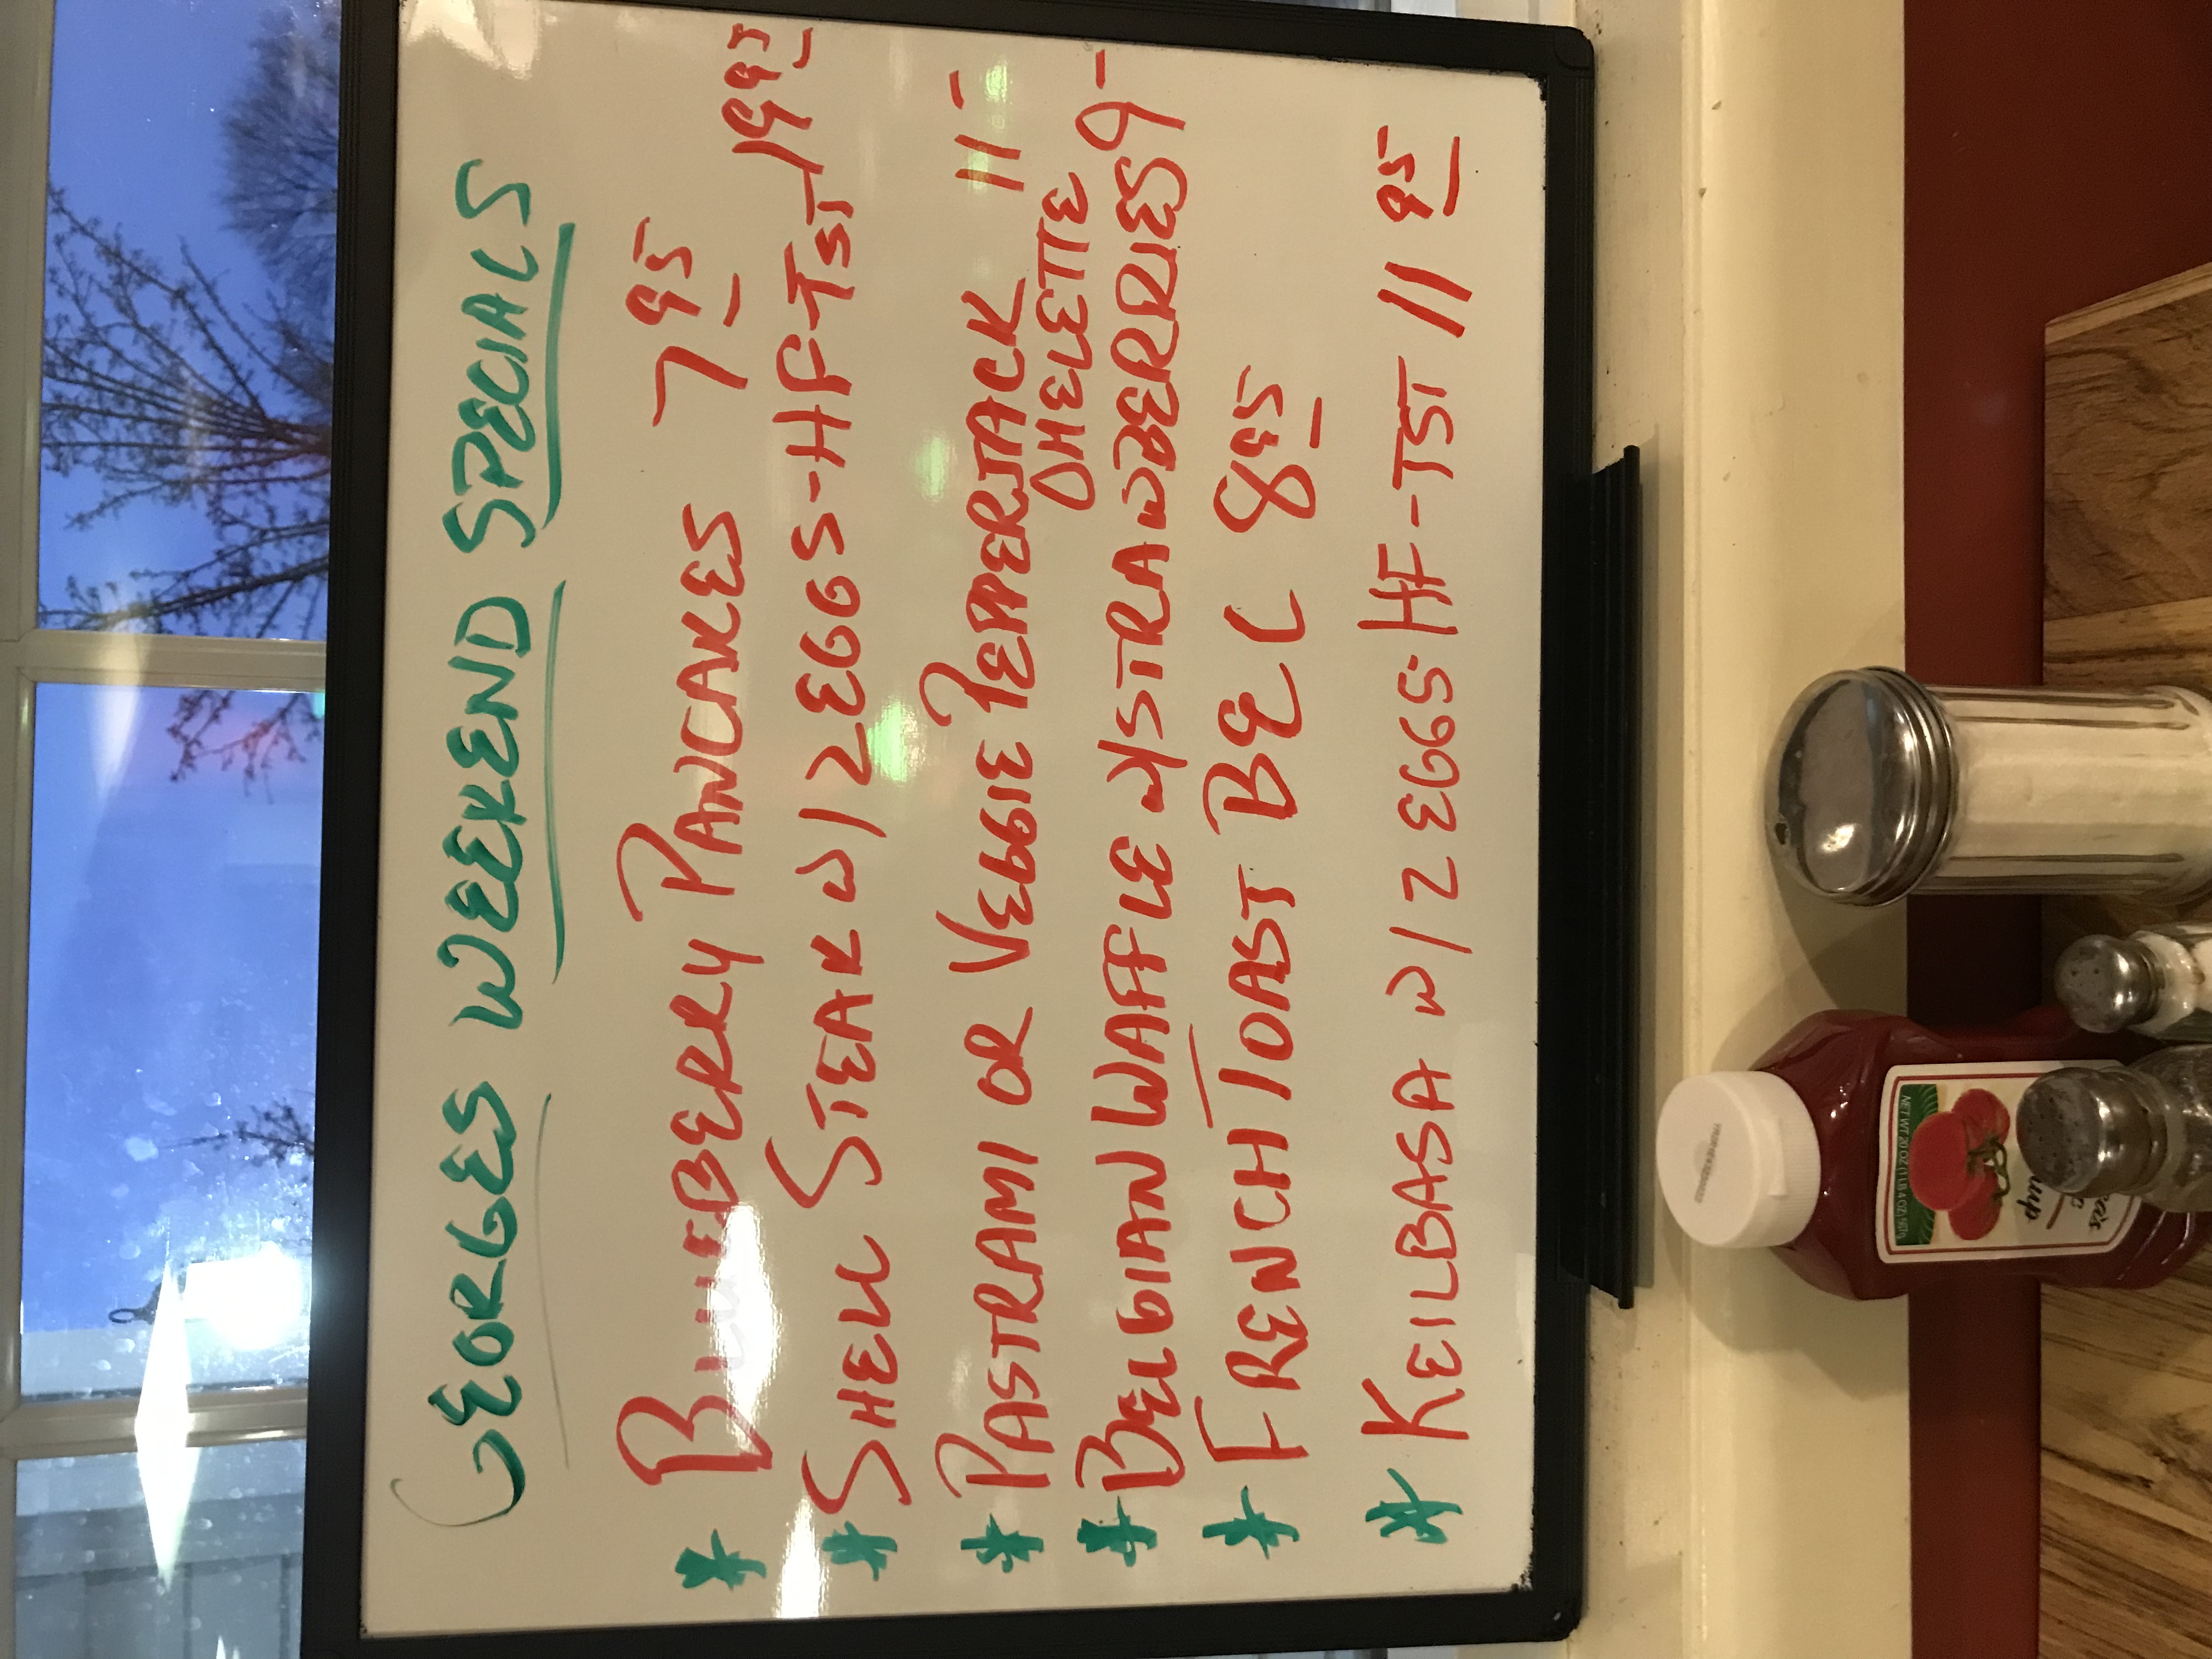 GEORGES WEEKEND SPECIALS
* BLUEBERRY PANCAKES 7 95
* SHELL STEAK W/ 2 EGGS-HF-TST 19 95
* PASTRAMI OR VEGGIE PEPPERJACK 11-
OMELETTE
* BELGIAN WAFFLE W/STRAWBERRIES 9-
* FRENCH TOAST BEC 8 95
* KEILBASA W/ 2 EGGS-HF-TST 11 95
NET WT 20 OZ (1 LB 4 OZ) 567g